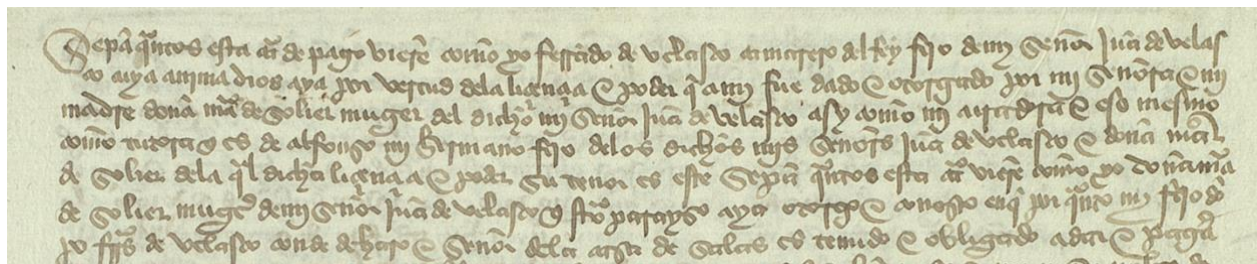 Sepã quãtos esta cr̃a de pago vierẽ como yo ferrãdo de velasco camarero del Rey fijo de mi señor Juã de velas
co cuya anima dios aya por vertud dela liçençia e poder q̃ a mi fue dado e otorgado por mi señora e mi
madre doña mã de solier muger del dicho mi señor Juã de velasco asy como mi curadera e eso mesmo
como tutora q̃ es de alfonso mi hermano fijo delos dichos mis señores Juã de velasco e doña mã
de solier dela q̃l dicha liçençia e poder su tenor es este Sepã quãtos esta cr̃a vierẽ como yo doña mã
de solier muger de mi señor Juã de velasco q̃ scõ parayso aya otorgo e conosco en q̃ por quãto mi fijo dõ
po frrs de velasco conde de haro e señor dela casa de salas es tenido e obligado a dar e pagar